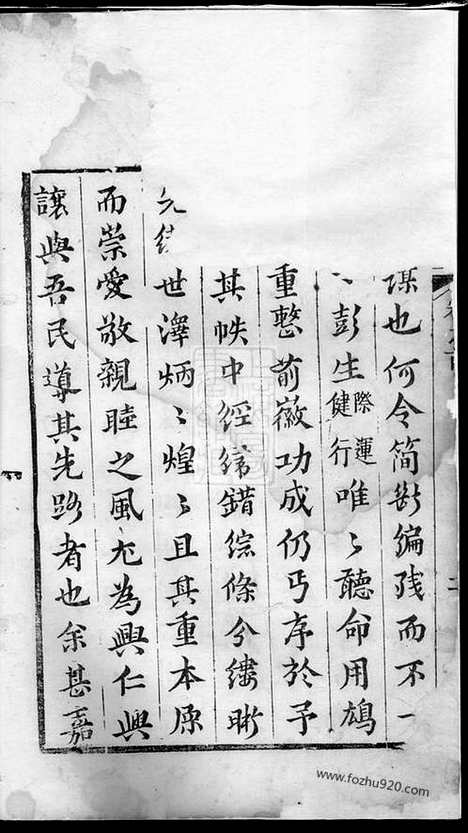 謀也何令简断编残而不一
彭生際運健行唯〻聽命用鳩
重整前徽功成仍丐序於予
其帙中經綸錯綜條分縷晰
世澤炳〻煌〻且其重本原
而崇愛敬親睦之風尤為興仁興
讓與吾民導其先路者也余甚嘉
www.fozhu920.com